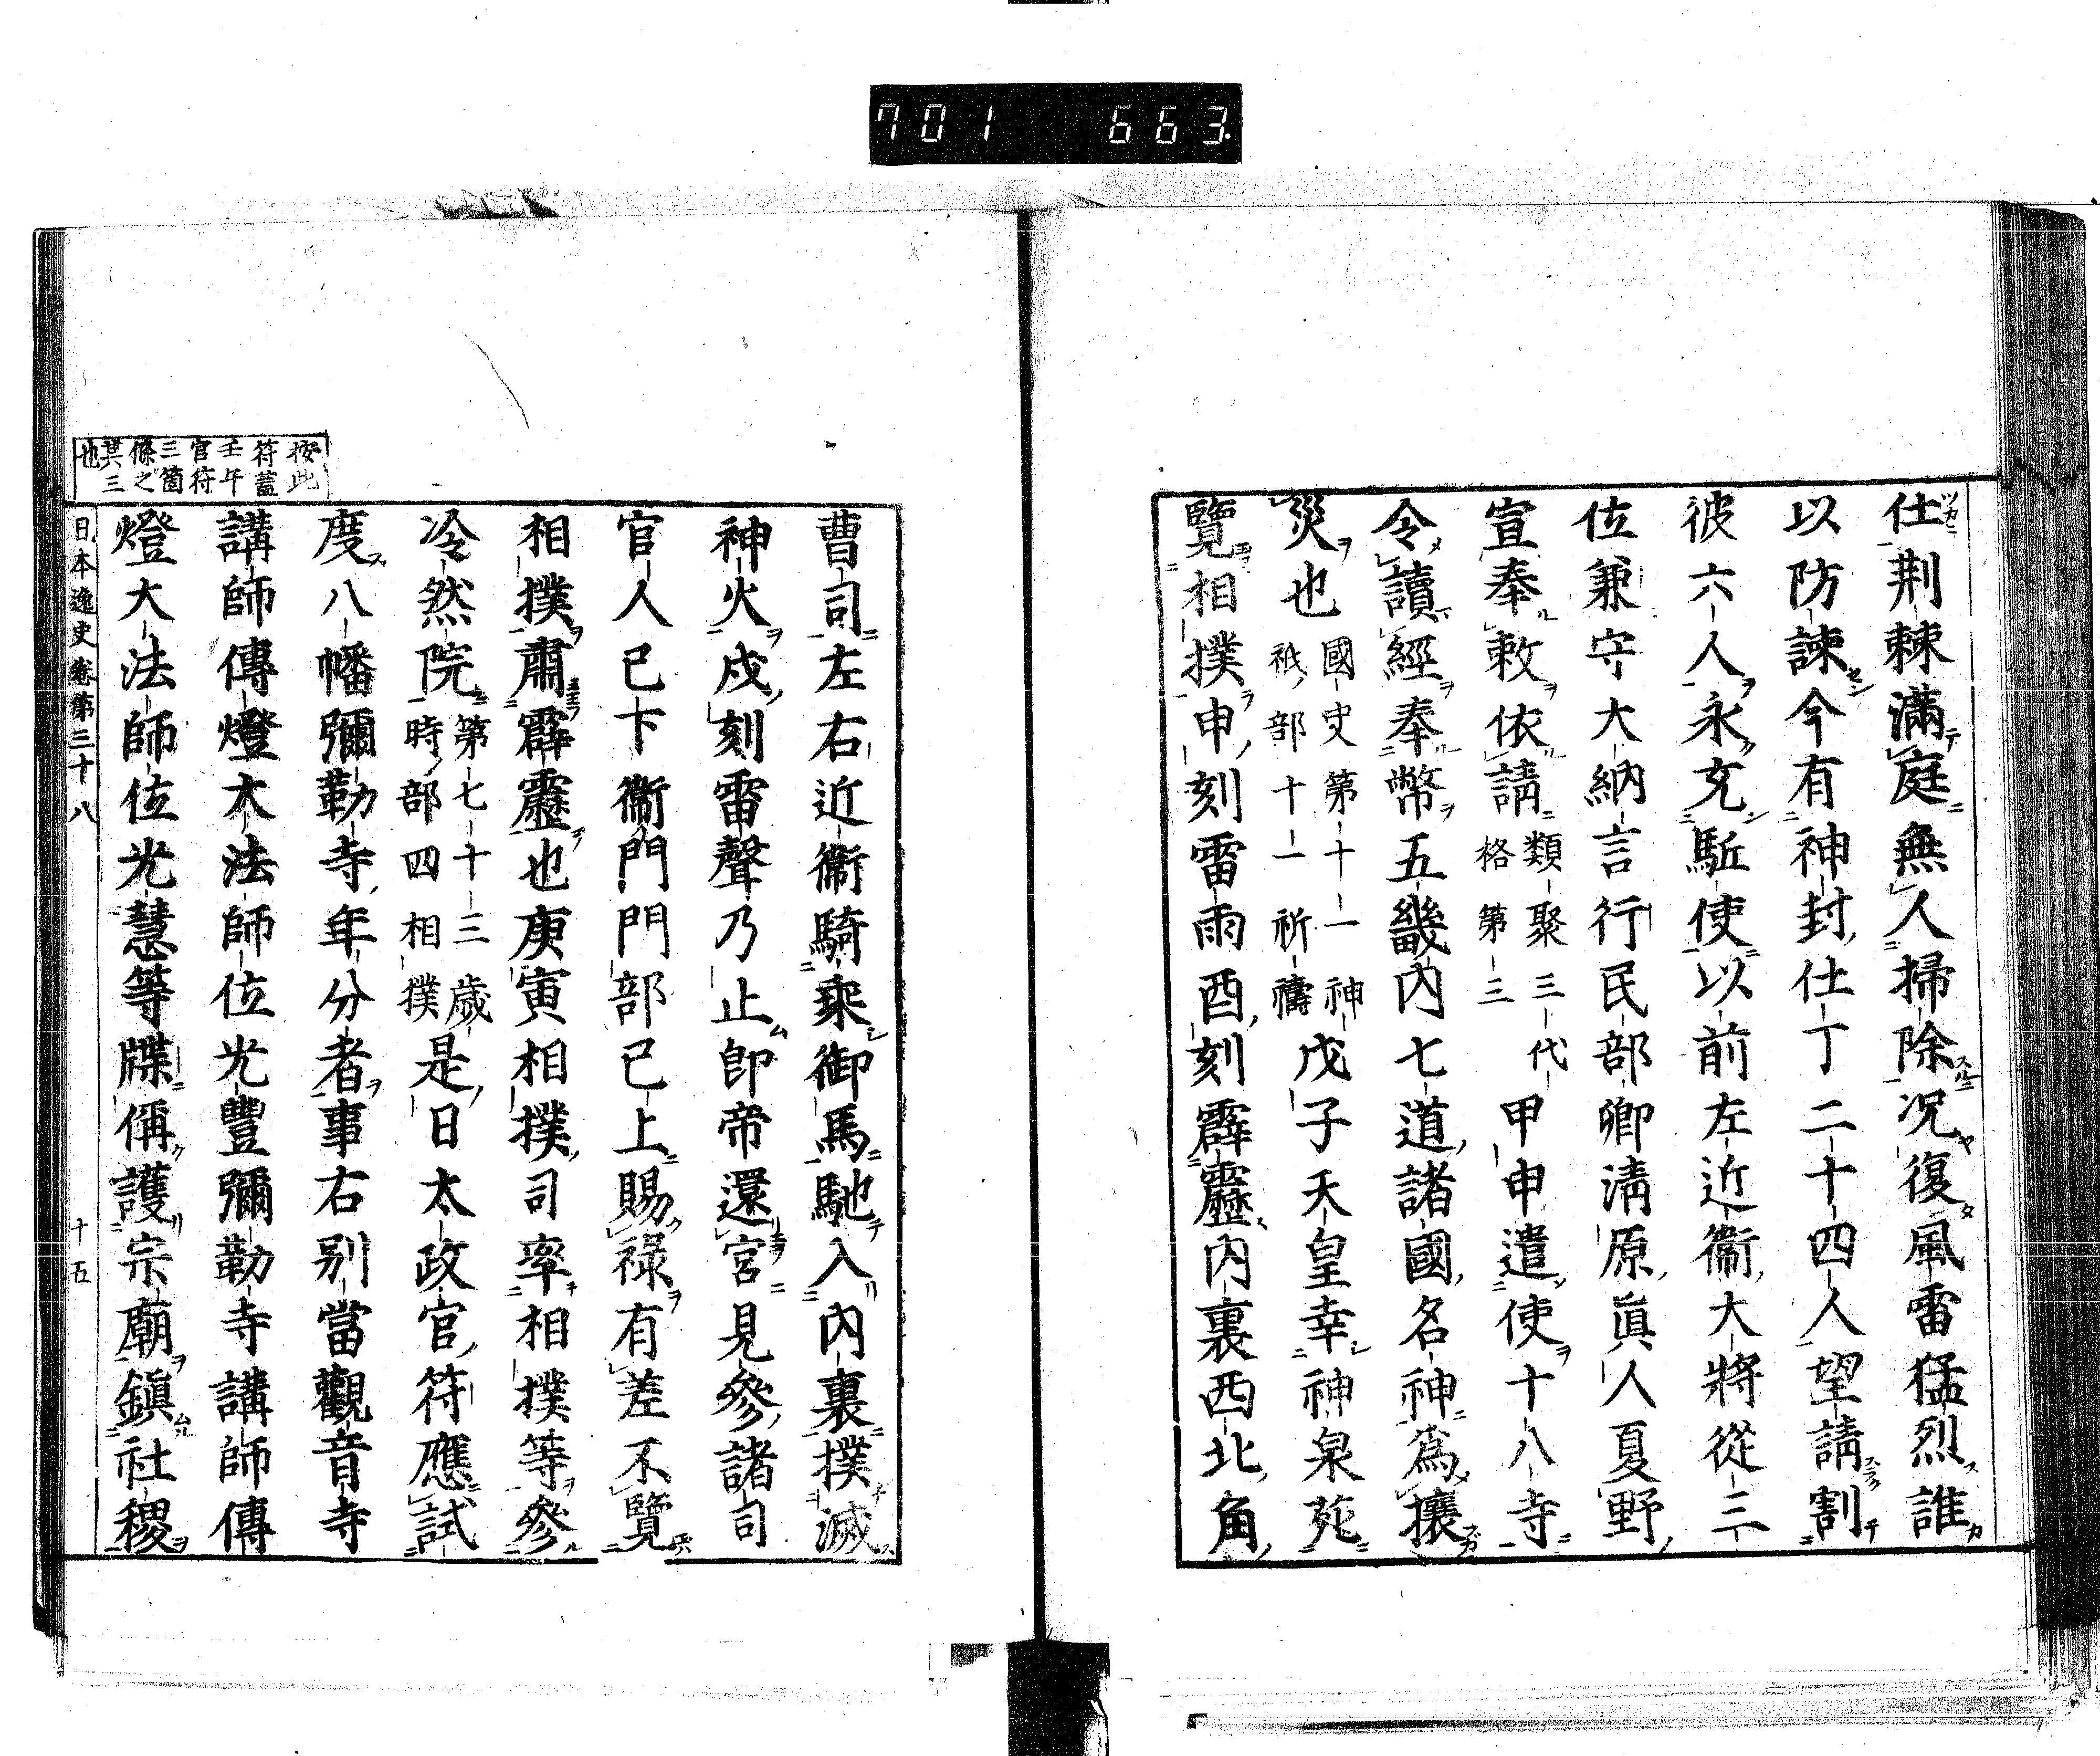 701 663
仕荆棘滿庭無人掃除况復風雷猛烈誰
以防諫今有神封仕丁二十四人望請割
彼六人永充駈使以前左近衞大將從三
位兼守大納言行民部卿淸原眞人夏野
宣奉敕依請類聚三代格第三甲申遣使十八寺
令讀經奉幣五畿內七道諸國名神爲攘
災也國史第十一神祇部十一祈禱戊子天皇幸神泉苑
覽相撲申刻雷雨酉刻霹靂內裏西北角
曹司左右近衞騎乘御馬馳入內裏撲滅
神火戌刻雷聲乃止卽帝還宮見參諸司
官人已下衞門門部已上賜祿有差不覽
相撲肅霹靂也庚寅相撲司率相撲等參
冷然院第七十三歲時部四相撲是日太政官符應試
度八幡彌勒寺年分者事右別當觀音寺
講師傳燈大法師位光豐彌勒寺講師傳
燈大法師位光慧等牒偁護宗廟鎭社稷
按此
符蓋
壬午
官符
三箇
條之
其三
也
日本逸史卷第三十八 十五